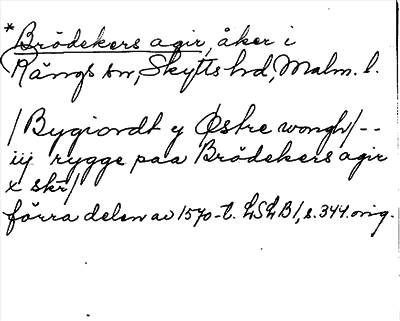 *Brödekers agir, åker i
Rängs sn, Skytts hd, Malm. l.
/Bygiordt y Østre wongh/--
iij rygge paa Brödekers agir
x skr/
förra delen av 1570-t. LSLB1, s. 344. orig.